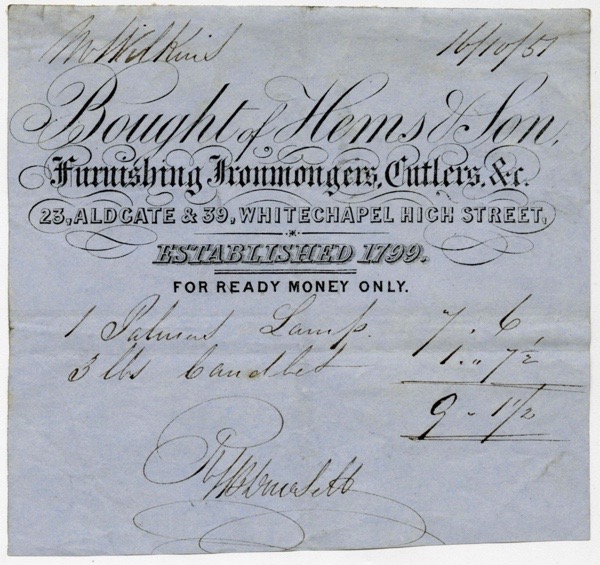 Mr Wilkins 16/10/57
Bought of Hems & Son,
Furnishing Ironmongers, Cutlers, &c.
23, ALDGATE & 39, WHITECHAPEL HIGH STREET,
ESTABLISHED 1799.
FOR READY MONEY ONLY.
1 Palmers Lamp. 7. 6
3 lbs Candles 1 " 7 1/2
9 - 1 1/2